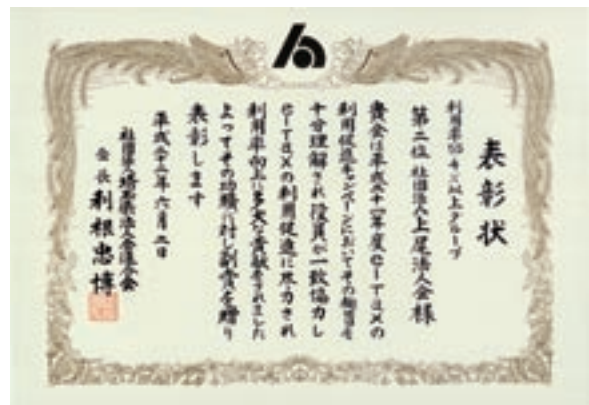 表彰状
利用率50.4%以上グループ
第二位 社団法人上尾法人会様
貴会は平成二十一年度e-Taxの
利用促進キャンペーンにおいてその趣旨を
十分理解され役員が一致協力し
e-Taxの利用促進に尽力され
利用率向上に多大な貢献をされました
よってその功績に対し副賞を贈り
表彰します
平成二十二年六月二日
社団法人埼玉県法人会連合会
会長 利根忠博